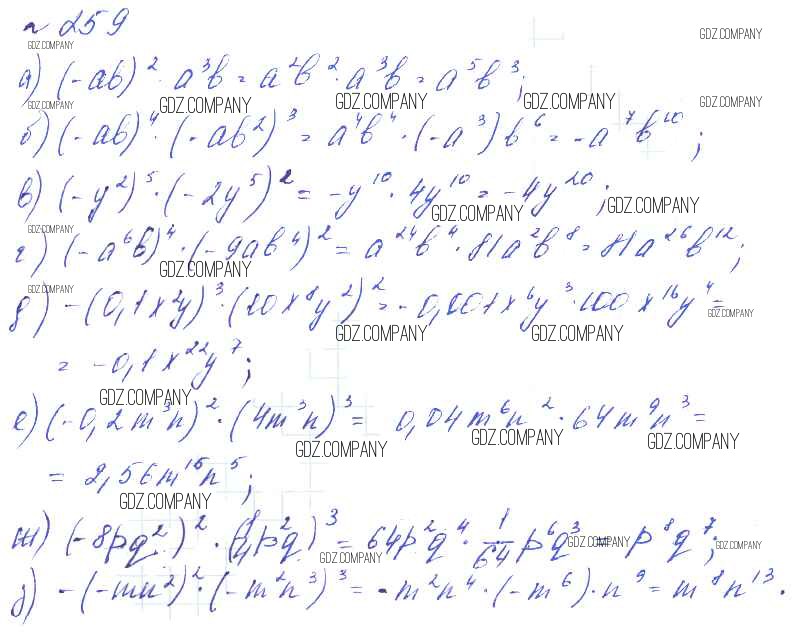 № 259
GDZ.COMPANY GDZ.COMPANY
а) (-ab)² · a³b = a²b² · a³b = a⁵b³;
GDZ.COMPANY GDZ.COMPANY GDZ.COMPANY GDZ.COMPANY GDZ.COMPANY
б) (-ab)⁴ · (-ab²)³ = a⁴b⁴ · (-a³)b⁶ = -a⁷b¹⁰;
в) (-y²)⁵ · (-2y⁵)² = -y¹⁰ · 4y¹⁰ = -4y²⁰;
GDZ.COMPANY GDZ.COMPANY
GDZ.COMPANY
г) (-a⁶b)⁴ · (-9ab⁴)² = a²⁴b⁴ · 81a²b⁸ = 81a²⁶b¹²;
GDZ.COMPANY
GDZ.COMPANY
д) -(0,1x²y)³ · (10x⁸y²)² = -0,001x⁶y³ · 100x¹⁶y⁴ =
GDZ.COMPANY GDZ.COMPANY GDZ.COMPANY
= -0,1x²²y⁷;
GDZ.COMPANY
е) (-0,2m³n)² · (4m³n)³ = 0,04m⁶n² · 64m⁹n³ =
GDZ.COMPANY GDZ.COMPANY GDZ.COMPANY
= 2,56m¹⁵n⁵;
GDZ.COMPANY
ж) (-8pq²)² · (¼p²q)³ = 64p²q⁴ · 1/64 p⁶q³ = p⁸q⁷;
GDZ.COMPANY GDZ.COMPANY GDZ.COMPANY
з) -(-mn²)² · (-m²n³)³ = -m²n⁴ · (-m⁶) · n⁹ = m⁸n¹³.